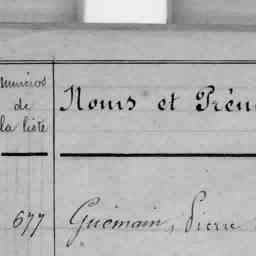 numéros
de
la liste
Noms et Prén
677
Guémain, Pierre